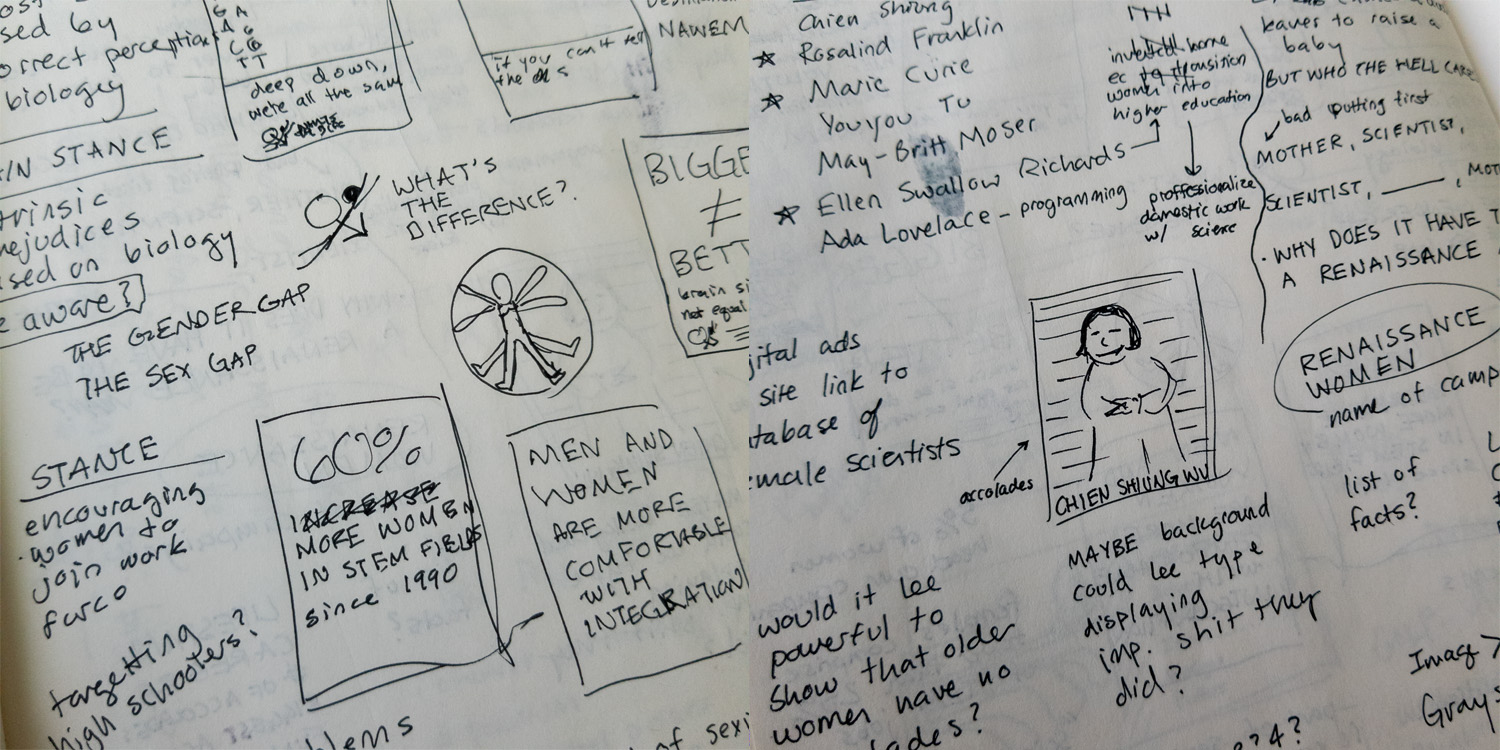 sed by
orrect perception
biology
G A
A G
C G
T T
deep down,
we're all the same
if you can't tell
the
NAWEM
/N STANCE
trinsic
rejudices
sed on biology
e aware?
WHAT'S
THE
DIFFERENCE?
BIGGE
≠
BETT
brain si
not equal
THE GENDER GAP
THE SEX GAP
STANCE
encouraging
women to
join work
furco
targetting
high schoolers?
60%
INCREASE
MORE WOMEN
IN STEM FIELDS
since 1990
MEN AND
WOMEN
ARE MORE
COMFORTABLE
WITH
INTEGRATION
blems
of sexi
Chien Shiung
Rosalind Franklin
Marie Curie
Youyou Tu
May-Britt Moser
Ellen Swallow Richards
Ada Lovelace - programming
home
ec to transition
women into
higher education
proffessionalize
domestic work
w/ science
leaves to raise a
baby
BUT WHO THE HELL CARE
bad putting first
MOTHER, SCIENTIST,
SCIENTIST, ____, MOT
• WHY DOES IT HAVE T
A RENAISSANCE
RENAISSANCE
WOMEN
name of camp
list of
facts?
gital ads
site link to
tabase of
emale scientists
accolades
CHIEN SHIUNG WU
MAYBE background
could be type
displaying
imp. shit they
did?
would it be
powerful to
show that older
women have no
lades?
Imag
Gray
?4?